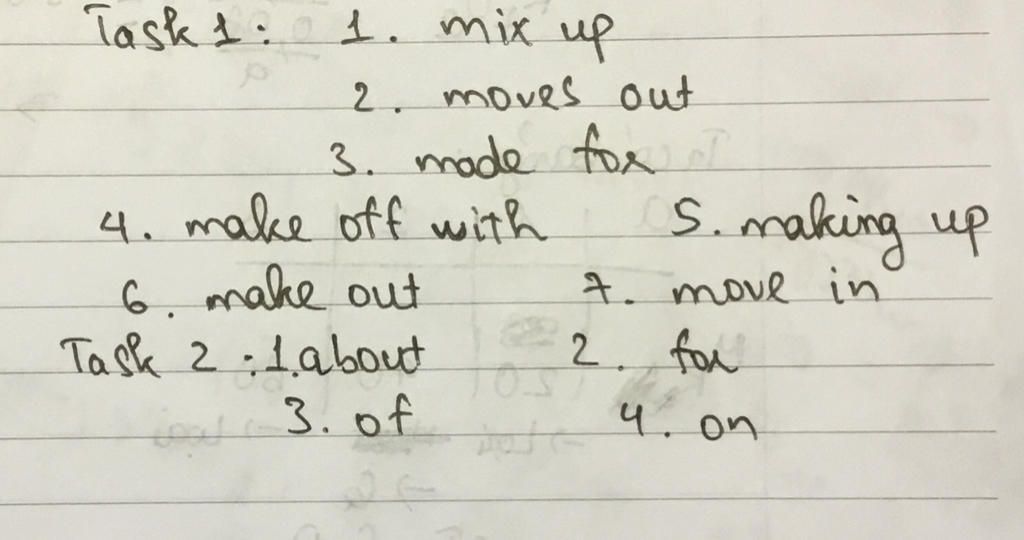 Task 1: 1. mix up
2. moves out
3. made for
4. make off with 5. making up
6. make out 7. move in
Task 2: 1. about 2. for
3. of 4. on